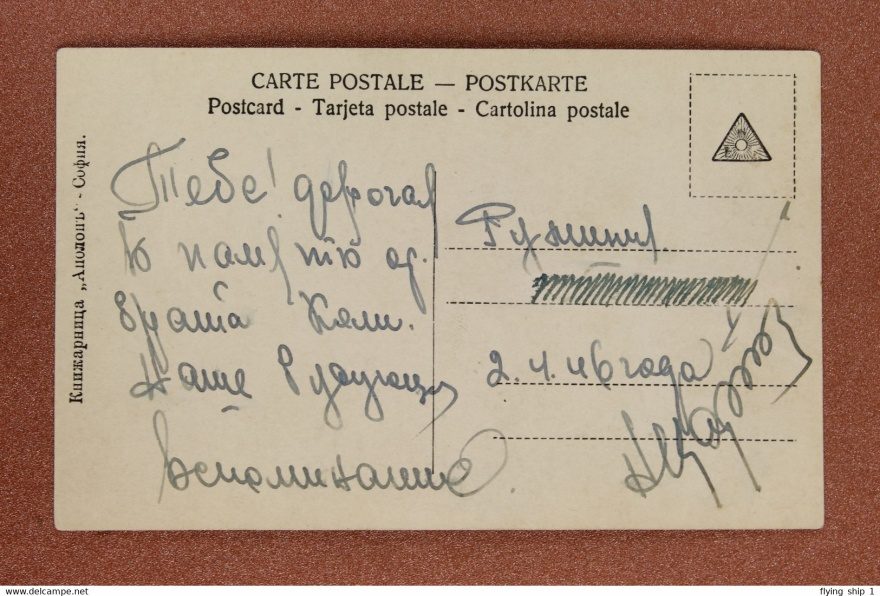 CARTE POSTALE — POSTKARTE
Postcard - Tarjeta postale - Cartolina postale
Книжарница „Аполонъ“ - София.
Тебе! дорогая
В память от
брата Коли.
Наше будущее
Вспоминание
2.4.46 года
delcampe.net
flying ship 1